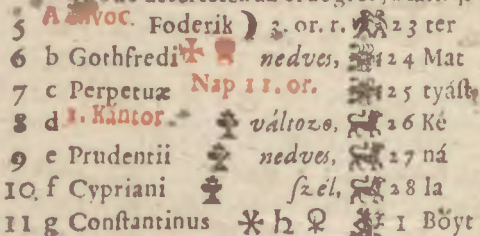 5 A Invoc. Foderik ☽ 3. or. r. 23 ter
6 b Gothfredi nedves, 24 Mat
7 c Perpetuæ Nap 11. or. 25 tyáſt
8 d 1. Kántor változo, 26 Ke
9 e Prudentii nedves, 27 ná
10. f Cypriani ſzél, 28 la
11 g Conſtantinus ⚹ ♄ ♀ 1 Böyt